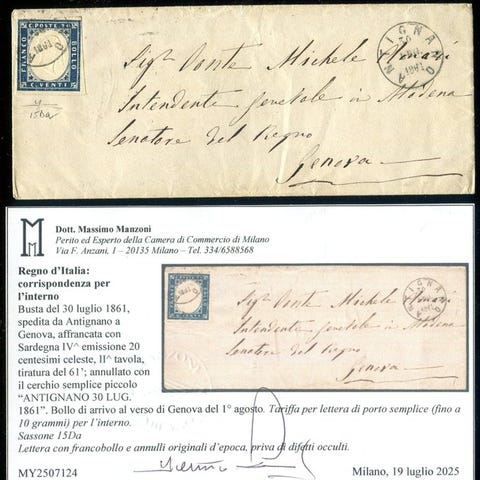 C. POSTE 20
FRANCO
BOLLO
C. VENTI
15Da
ANTIGNANO
30
1861
Sigr Conte Michele
Intendente Generale in Modena
Senatore del Regno
Genova
Dott. Massimo Manzoni
Perito ed Esperto della Camera di Commercio di Milano
Via F. Anzani, 1 – 20135 Milano – Tel. 334/6588568
Regno d'Italia:
corrispondenza per
l'interno
Busta del 30 luglio 1861,
spedita da Antignano a
Genova, affrancata con
Sardegna IV^ emissione 20
centesimi celeste, II^ tavola,
tiratura del 61'; annullato con
il cerchio semplice piccolo
"ANTIGNANO 30 LUG.
1861". Bollo di arrivo al verso di Genova del 1° agosto. Tariffa per lettera di porto semplice (fino a
10 grammi) per l'interno.
Sassone 15Da
Lettera con francobollo e annulli originali d'epoca, priva di difetti occulti.
MY2507124
Milano, 19 luglio 2025
Sigr Conte Michele
Intendente Generale in Modena
Senatore del Regno
Genova